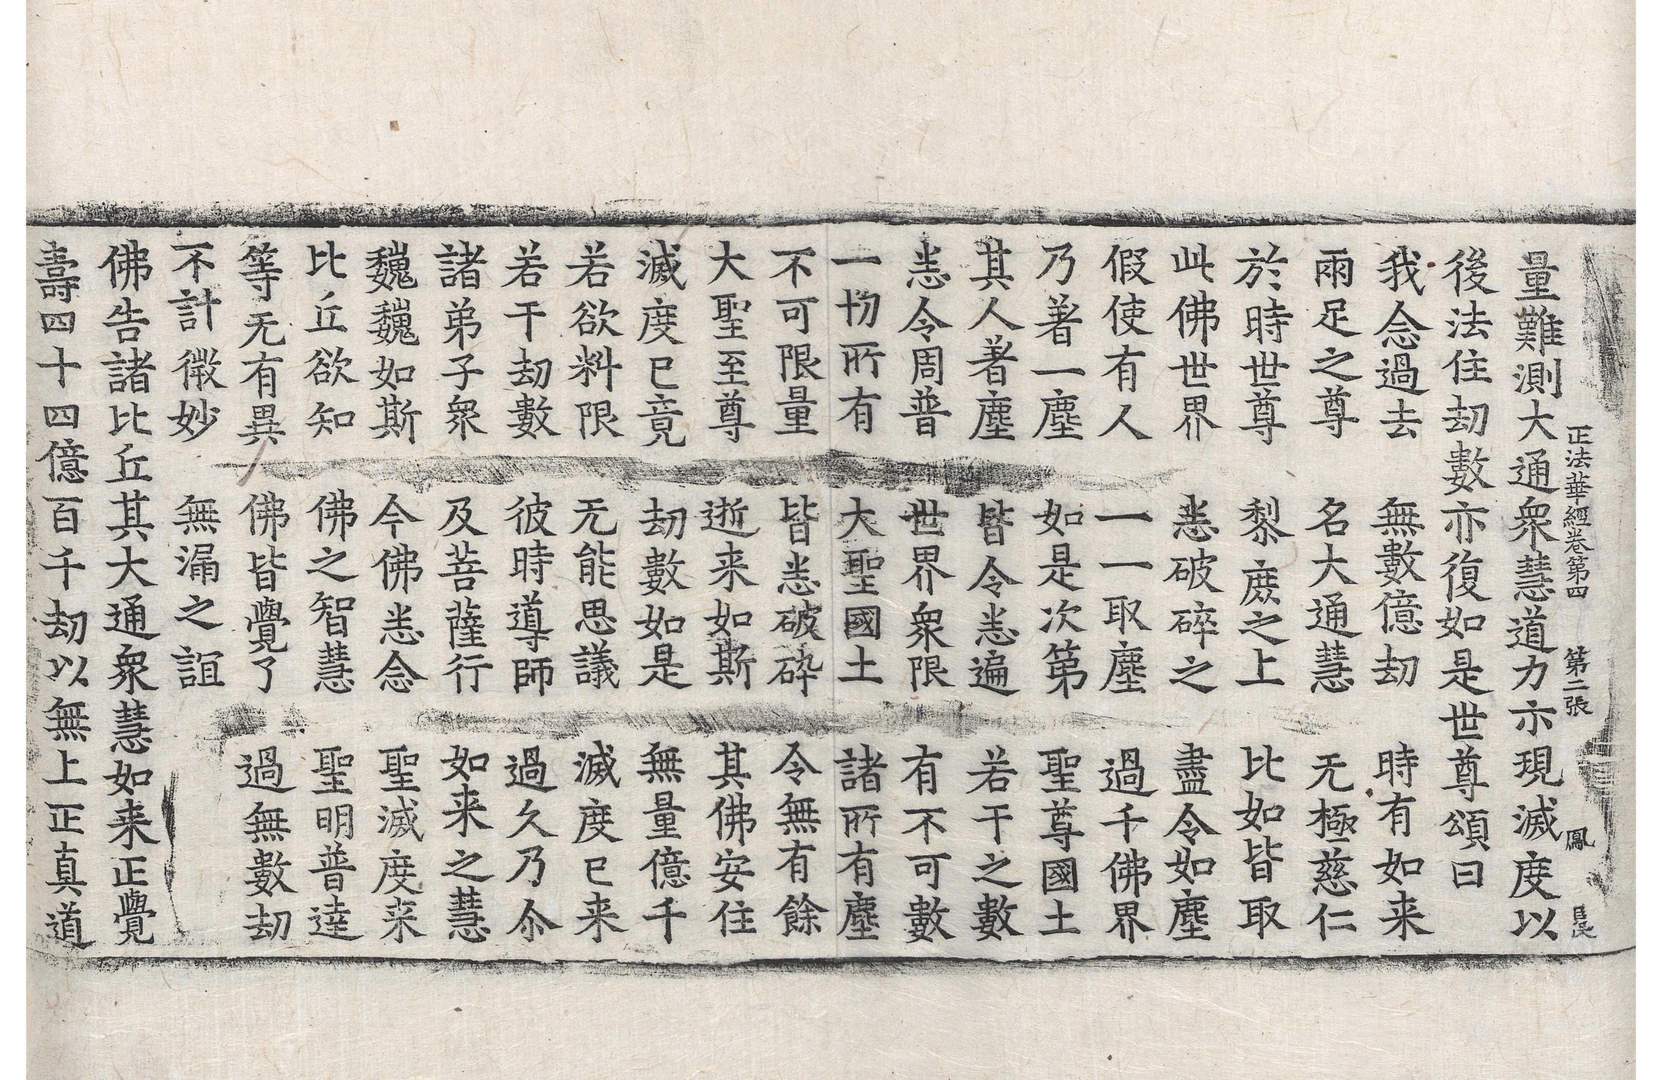 正法華經卷第四　第二張　鳳
量難測大通衆慧道力亦現滅度以
後法住劫數亦復如是世尊頌曰
我念過去　無數億劫　時有如来
兩足之尊　名大通慧　无極慈仁
於時世尊　黎庶之上　比如皆取
此佛世界　悉破碎之　盡令如塵
假使有人　一一取塵　過千佛界
乃著一塵　如是次第　聖尊國土
其人著塵　皆令悉遍　若干之數
悉令周普　世界衆限　有不可數
一切所有　大聖國土　諸所有塵
不可限量　皆悉破碎　令無有餘
大聖至尊　逝来如斯　其佛安住
滅度已竟　劫數如是　無量億千
若欲料限　无能思議　滅度已来
若干劫數　彼時導師　過久乃尒
諸弟子衆　及菩薩行　如来之慧
巍巍如斯　今佛悉念　聖滅度来
比丘欲知　佛之智慧　聖明普達
等无有異　佛皆覺了　過無數劫
不計微妙　無漏之誼
佛告諸比丘其大通衆慧如来正覺
壽四十四億百千劫以無上正真道